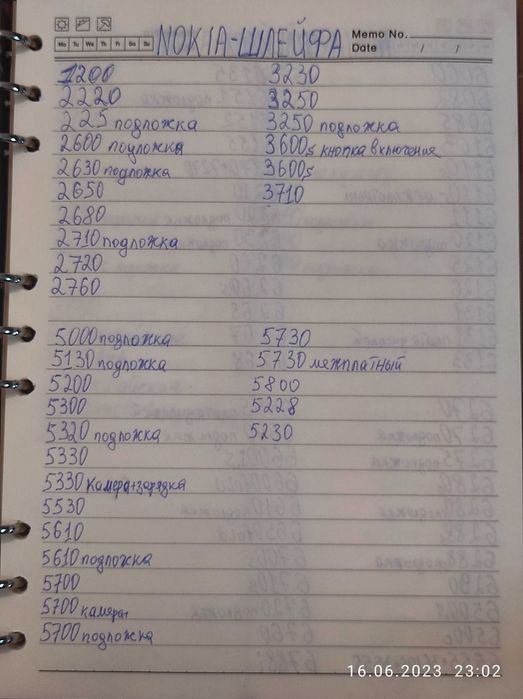 NOKIA-ШЛЕЙФА
Memo No.
Mo Tu We Th Fr Sa Su
Date / /
1200
2220
225 подложка
2600 подложка
2630 подложка
2650
2680
2710 подложка
2720
2760
3230
3250
3250 подложка
3600s кнопка включения
3600s
3710
5000 подложка
5130 подложка
5200
5300
5320 подложка
5330
5330 камера+зарядка
5530
5610
5610 подложка
5700
5700 камера
5700 подложка
5730
5730 межплатный
5800
5228
5230
16.06.2023 23:02